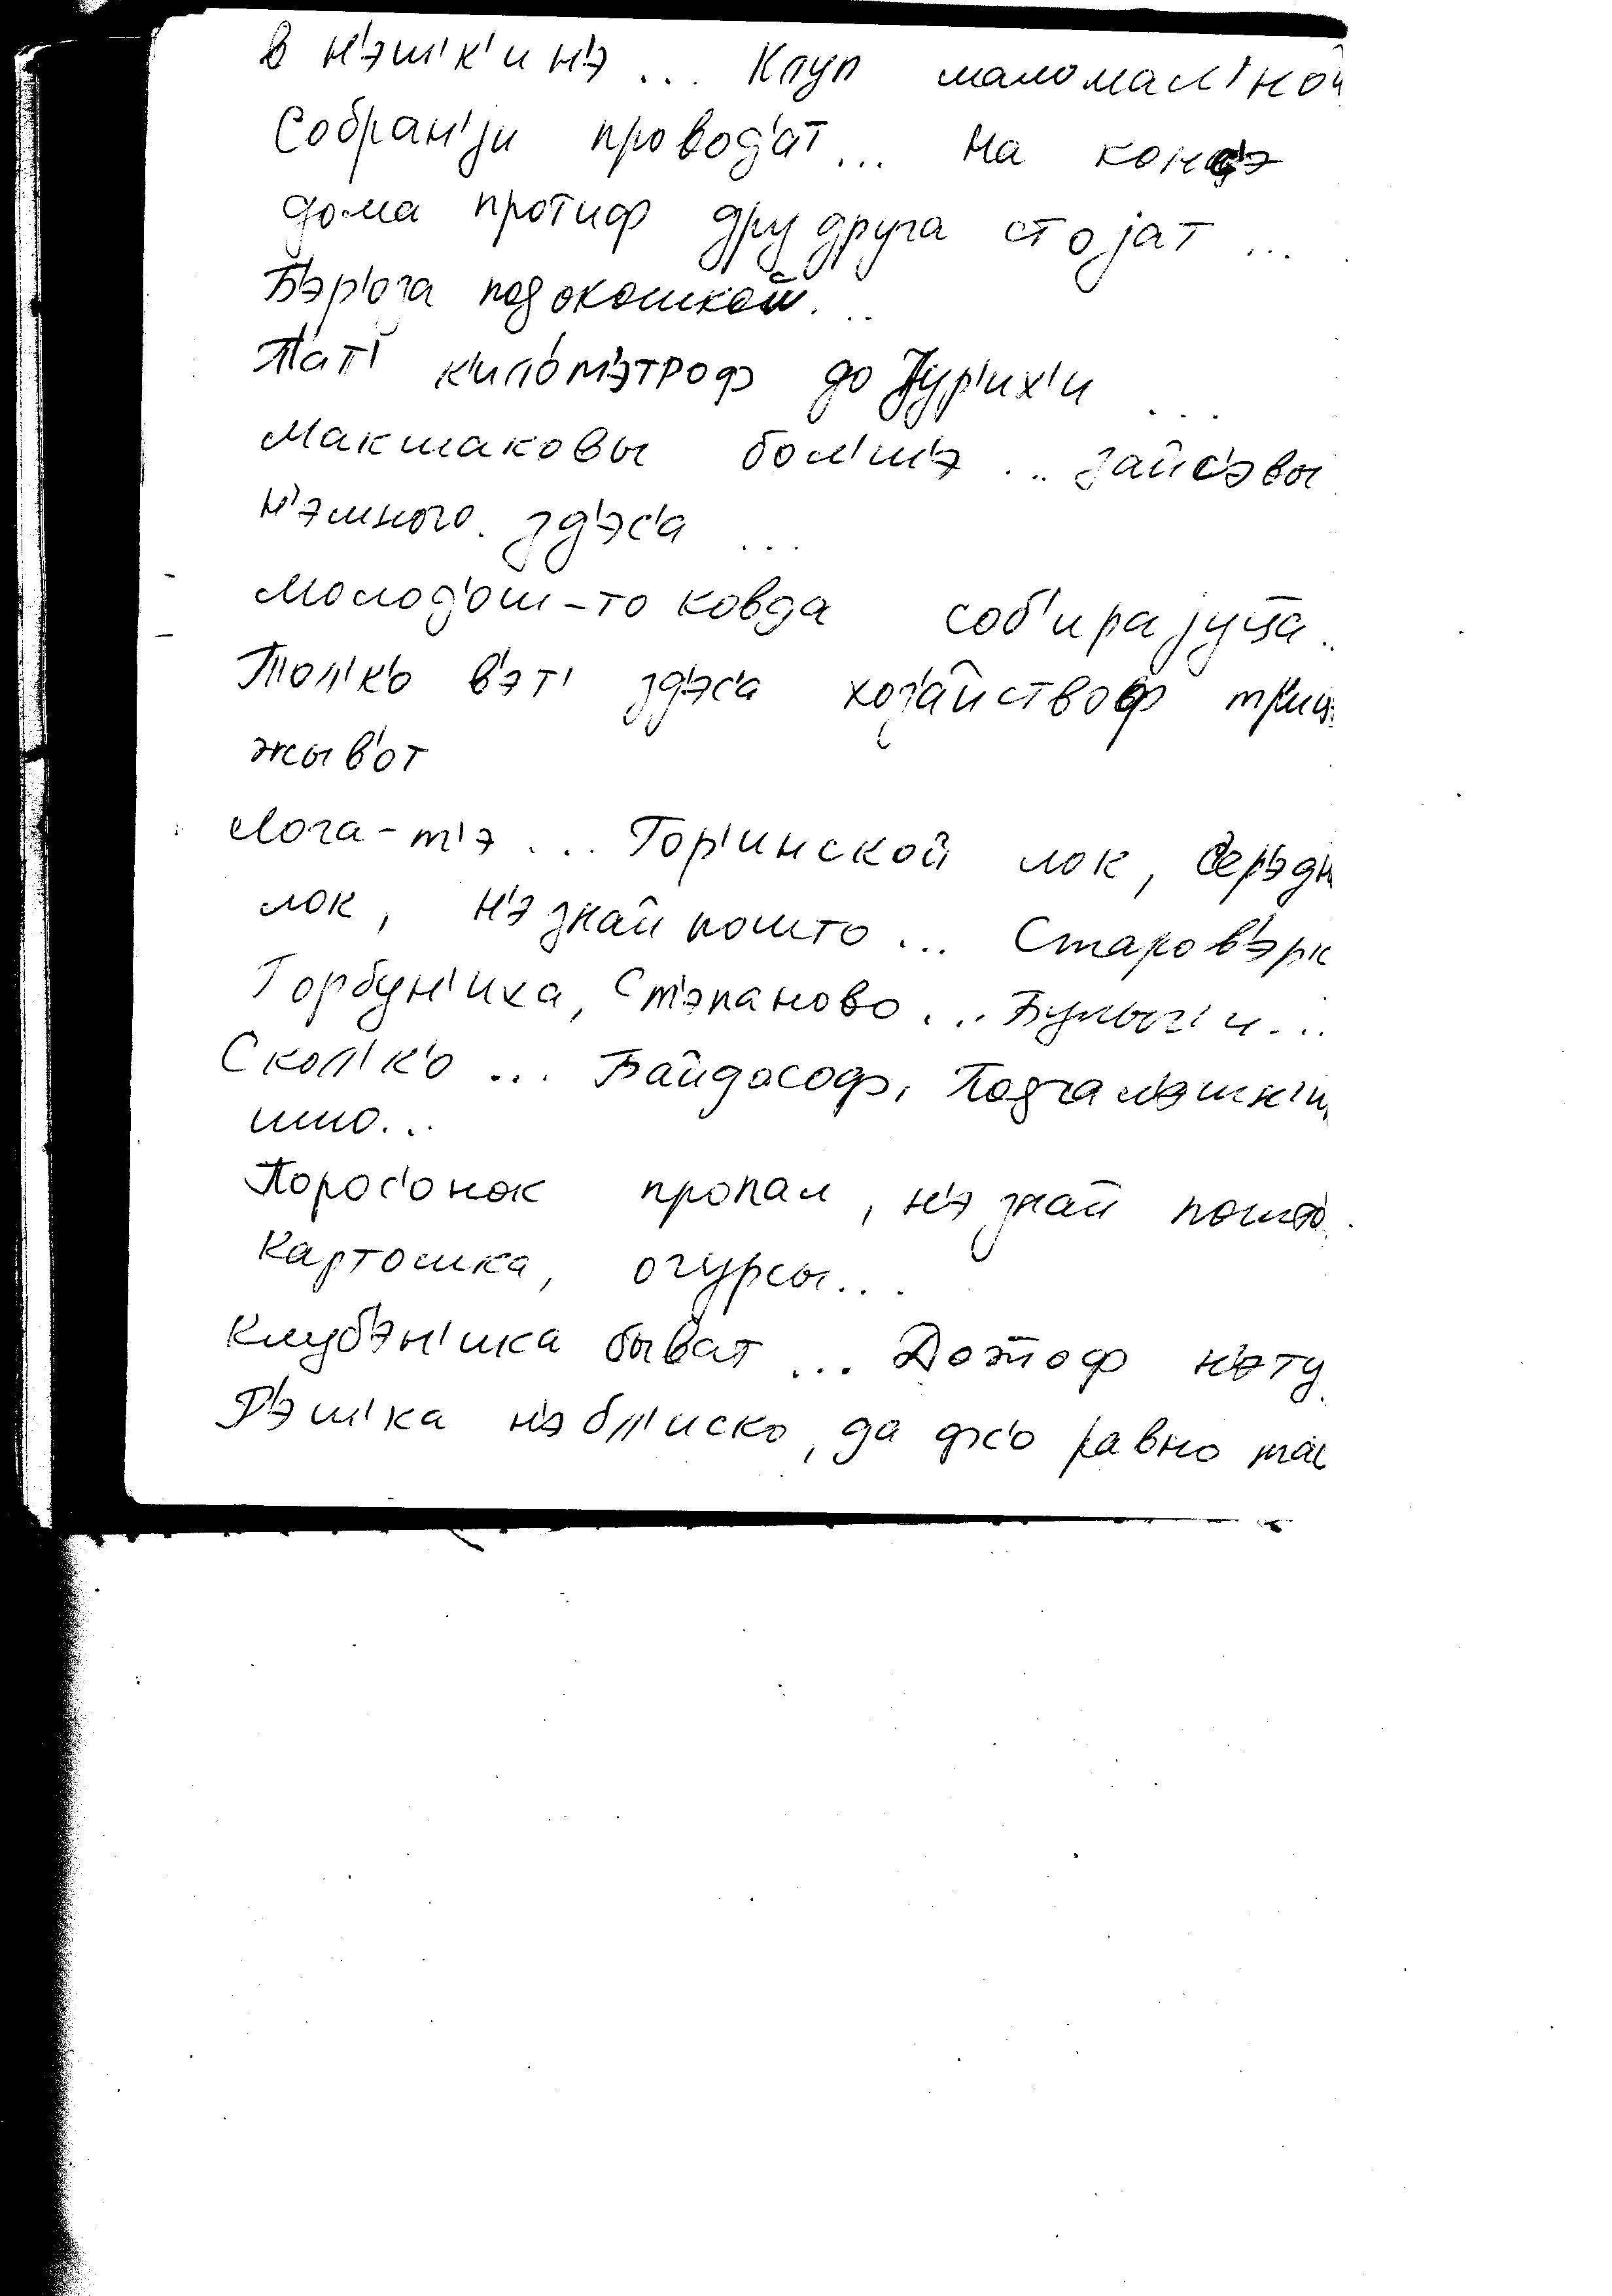 в н'эш'к'ин'э ... Клуп маломал'ной
Собран'jи провод'ат ... На конц'э
дома противф дру друга стоjат ...
Б'эр'ога под окошкой ...
П'ат' к'илом'этроф до Нур'их'и ...
Макшаковы бол'ш'э ... зайс'эвы
н'эмного. зд'эс'а ...
Молод'ош-то ковда соб'ираjуца ..
Тол'к'о в'эт' зд'эс'а хоз'айствоф
жыв'от
Лога-т'э ... Гор'инской лок,
лок, н'э знай пошто ...
Горбун'иха, Ст'эпаново ... Булыг'и ...
Скол'к'о ... Байдософ,
што ...
Порос'онок пропал, н'э знай пошто.
Картошка, огурсы ...
Клуб'эн'ика быват ... Дожжоф н'эту.
Р'эш'ка н'э бл'иско, да фс'о равно